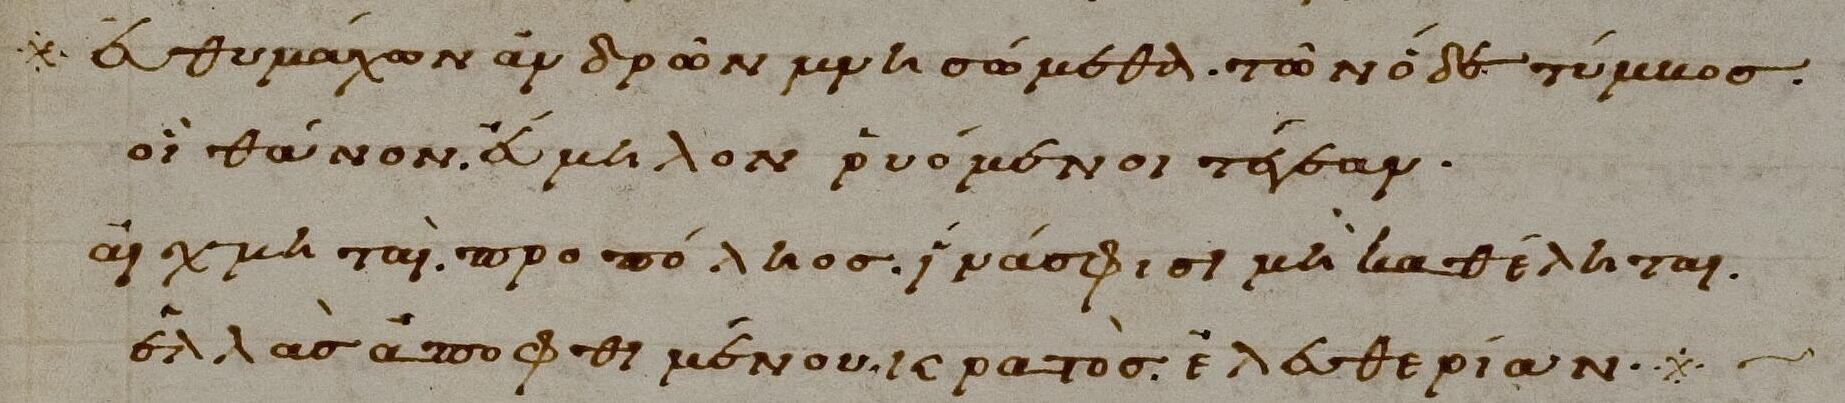 ※ εὐθυμάχων ἀνδρῶν μνησώμεθα. τῶν ὅδε τύμβος.
οἳ θάνον. εὔμηλον ῥυόμενοι τεγέαν.
αἰχμηταὶ. προ πόληος. ἵνα σφισι μὴ καθέληται.
ἑλλὰσ ἀποφθιμένου. κρατὸσ. ἐλευθερίαν. ※ ~